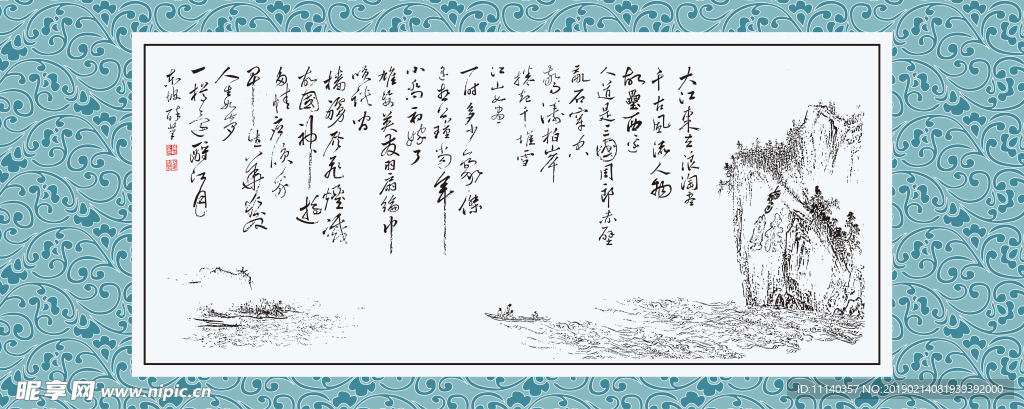 大江東去浪淘盡
千古風流人物
故壘西邊
人道是三國周郎赤壁
亂石穿空
驚濤拍岸
捲起千堆雪
江山如畫
一時多少豪傑
遙想公瑾當年
小喬初嫁了
雄姿英發羽扇綸巾
談笑間
檣櫓灰飛煙滅
故國神遊
多情應笑我
早生華髮
人生如夢
一樽還酹江月
東坡醉筆
昵享网 www.nipic.cn
ID:11140357 NO:20190214081939392000